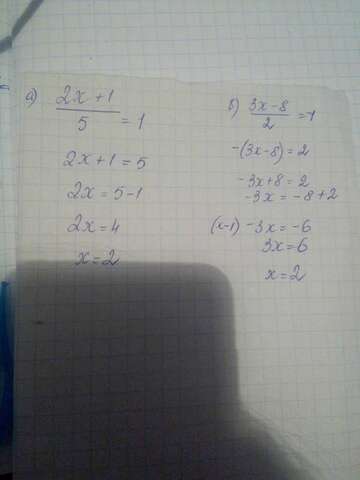 а) (2x+1)/5 = 1
2x+1=5
2x=5-1
2x=4
x=2
б) (3x-8)/2 = -1
-(3x-8)=2
-3x+8=2
-3x=-8+2
(x-1) -3x=-6
3x=6
x=2